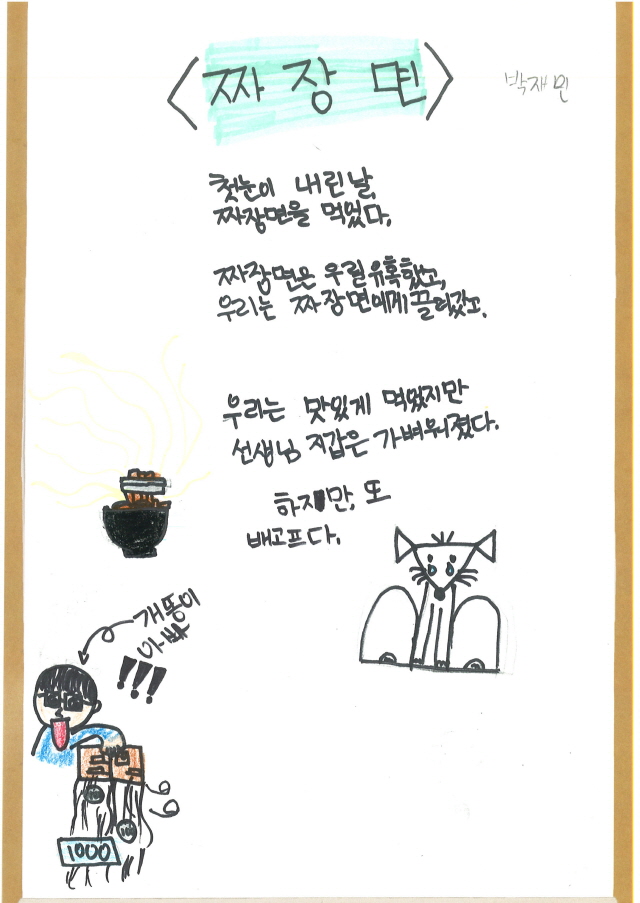 <짜장면>
박재민
첫눈이 내린날,
짜장면을 먹었다.
짜장면은 우릴유혹했고,
우리는 짜장면에게끌려갔고.
우리는 맛있게 먹었지만
선생님 지갑은 가벼워졌다.
하지만, 또
배고프다.
개똥이
아빠
!!!
100
100
1000